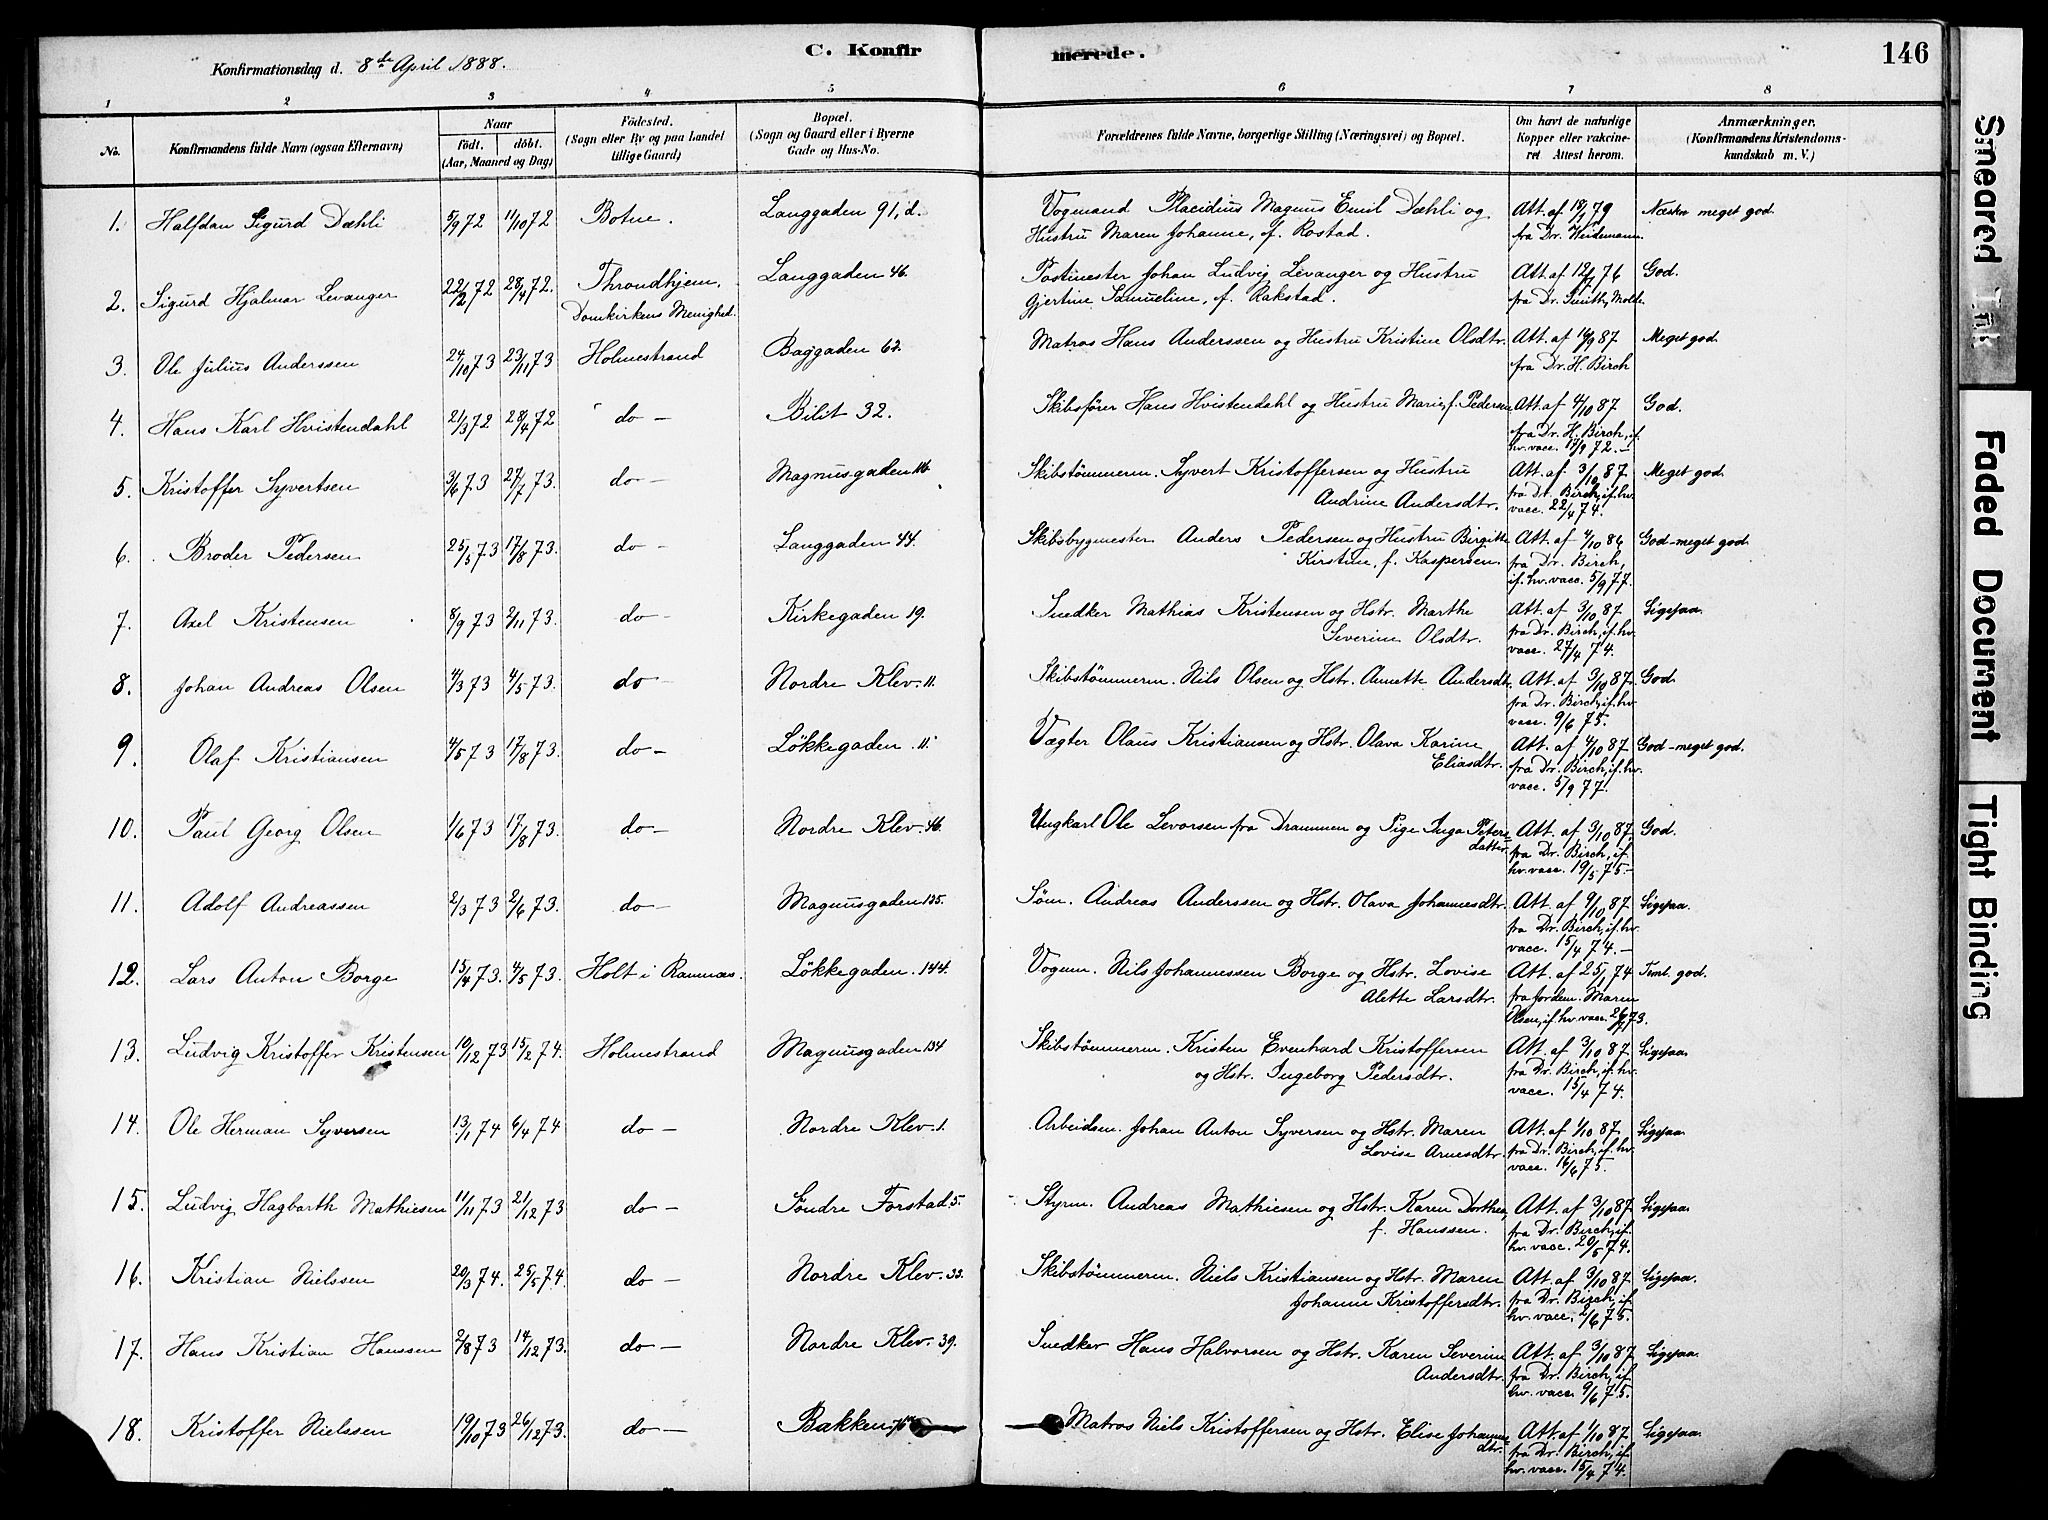 C. Konfir merede. 146
Konfirmationsdag d. 8de April 1888.
1 2 3 4 5 6 7 8
No. Konfirmandens fulde Navn (ogsaa Efternavn)
Naar
födt. döbt.
(Aar, Maaned og Dag)
Födested.
(Sogn eller By og paa Landet
tillige Gaard)
Bopæl.
(Sogn og Gaard eller i Byerne
Gade og Hus-No.
Forældrenes fulde Navne, borgerlige Stilling (Næringsvei) og Bopæl.
Om havt de naturlige
Kopper eller vakcine-
ret Attest herom.
Anmærkninger.
(Konfirmandens Kristendoms-
kundskab m. V.)
1. Halfdan Sigurd Dæhli 5/9 72 11/10 72 Botne. Langgaden 91, d. Vogmand Placidius Magnus Emil Dæhli og Att. af 19/1 79 Næsten meget god.
Hustru Maren Johanne, f. Rostad. fra Dr. Heidemann
2. Sigurd Hjalmar Levanger 22/2 72 28/4 72. Throndhjem, Langgaden 46. Postmester Johan Ludvig Levanger og Hustru Att. af 12/7 76 God.
Domkirkens Menighed. Gjertine Samueline, f. Rakstad. fra Dr. Smith, Molde.
3. Ole Julius Anderssen 24/10 73 23/11 73 Holmestrand Baggaden 62. Matros Hans Anderssen og Hustru Kristine Olsdtr. Att. af 16/9 87 Meget god.
fra Dr. H. Birch
4. Hans Karl Hvistendahl 21/3 72 28/4 72 do — Bilit 32. Skibsfører Hans Hvistendahl og Hustru Marie, f. Pedersen Att. af 4/10 87 God.
fra Dr. H. Birch, if.
hv. vacc. 17/9 72. —
5. Kristoffer Syvertsen 3/6 73 27/7 73. do — Magnusgaden 116. Skibstömmerm. Syvert Kristoffersen og Hustru Att. af 3/10 87. Meget god.
Andrine Andersdtr. fra Dr. Birch, if. hv.
vacc. 22/4 74.
6. Broder Pedersen 25/5 73 17/8 73. do — Langgaden 44. Skibsbygmester Anders Pedersen og Hustru Birgitte Att. af 4/10 86 God-meget god.
Kirstine, f. Kaspersen. fra Dr. Birch,
if. hv. vacc. 5/9 77.
7. Axel Kristensen 8/9 73 2/11 73. do — Kirkegaden 19. Snedker Mathias Kristensen og Hstr. Marthe Att. af 3/10 87. Ligesaa.
Severine Olsdtr. fra Dr. Birch, if. hv.
vacc. 27/4 74.
8. Johan Andreas Olsen 4/3 73 4/5 73. do — Nordre Klev. 11. Skibstömmerm. Nils Olsen og Hstr. Annette Andersdt. Att. af 3/10 87. God.
fra Dr. Birch, if. hv
vacc. 9/6 75.
9. Olaf Kristiansen 4/5 73 17/8 73. do — Løkkegaden 11. Vægter Olaus Kristiansen og Hstr. Olava Karine Att. af 4/10 87 God-meget god.
Eliasdtr. fra Dr. Birch, if. hv.
vacc. 5/9 77.
10. Paul Georg Olsen 1/6 73 17/8 73. do — Nordre Klev. 46. Ungkarl Ole Levorsen fra Drammen og Pige Inga Peters Att. af 3/10 87. God.
datter fra Dr. Birch, if
hv. vacc. 19/5 75. —
11. Adolf Andreassen 2/3 73 2/6 73. do — Magnusgaden 135. Søm. Andreas Anderssen og Hstr. Olava Johannesdtr. Att. af 9/10 87. Ligesaa.
fra Dr. Birch, if. hv.
vacc. 15/4 74. —
12. Lars Anton Borge 15/4 73. 4/5 73. Holt i Ramnæs. Løkkegaden. 144. Vognm. Nils Johannessen Borge og Hstr. Lovise Att. af 25/1 74 Teml. god.
Alette Larsdtr. fra Jordem. Maren
Olsen, if. hv. vacc. 26/7 73.
13. Ludvig Kristoffer Kristensen 19/12 73 15/2 74. Holmestrand Magnusgaden 134 Skibstømmerm. Kristen Evenhard Kristoffersen Att. af 3/10 87. Ligesaa.
og Hstr. Ingeborg Pedersdtr. fra Dr. Birch, if. hv.
vacc. 15/4 74.
14. Ole Herman Syversen 13/1 74 6/4 74 do — Nordre Klev. 1. Arbeidsm. Johan Anton Syversen og Hstr. Maren Att. af 1/10 87. Ligesaa.
Lovise Arnesdtr. fra Dr. Birch, if. hv.
vacc. 16/6 75.
15. Ludvig Hagbarth Mathiesen 11/11 73 21/12 73 do — Søndre Forstad 5. Styrm. Andreas Mathiesen og Hstr. Karen Dorthea, Att. af 3/10 87. Ligesaa.
f. Hanssen. fra Dr. Birch, if.
hv. vacc. 20/5 74.
16. Kristian Nielssen 20/3 74. 25/5 74. do — Nordre Klev. 33. Skibstömmerm. Niels Kristiansen og Hstr. Maren Att. af 3/10 87 Ligesaa.
Johanne Kristoffersdtr. fra Dr. Birch, if
hv. vacc. 2/6 75.
17. Hans Kristian Hanssen 2/8 73 14/12 73. do — Nordre Klev. 39. Snedker Hans Halvorsen og Hstr. Karen Severine Att. af 3/10 87 Ligesaa.
Andersdtr. fra Dr. Birch, if
hv. vacc. 9/6 75.
18. Kristoffer Nielssen 19/10 73 26/12 73. do — Bakken Matros Niels Kristoffersen og Hstr. Elise Johannes Att. af 1/10 87 Ligesaa.
dtr. fra Dr. Birch, if
hv. vacc. 15/4 74.
Smeared Ink
Faded Document
Tight Binding